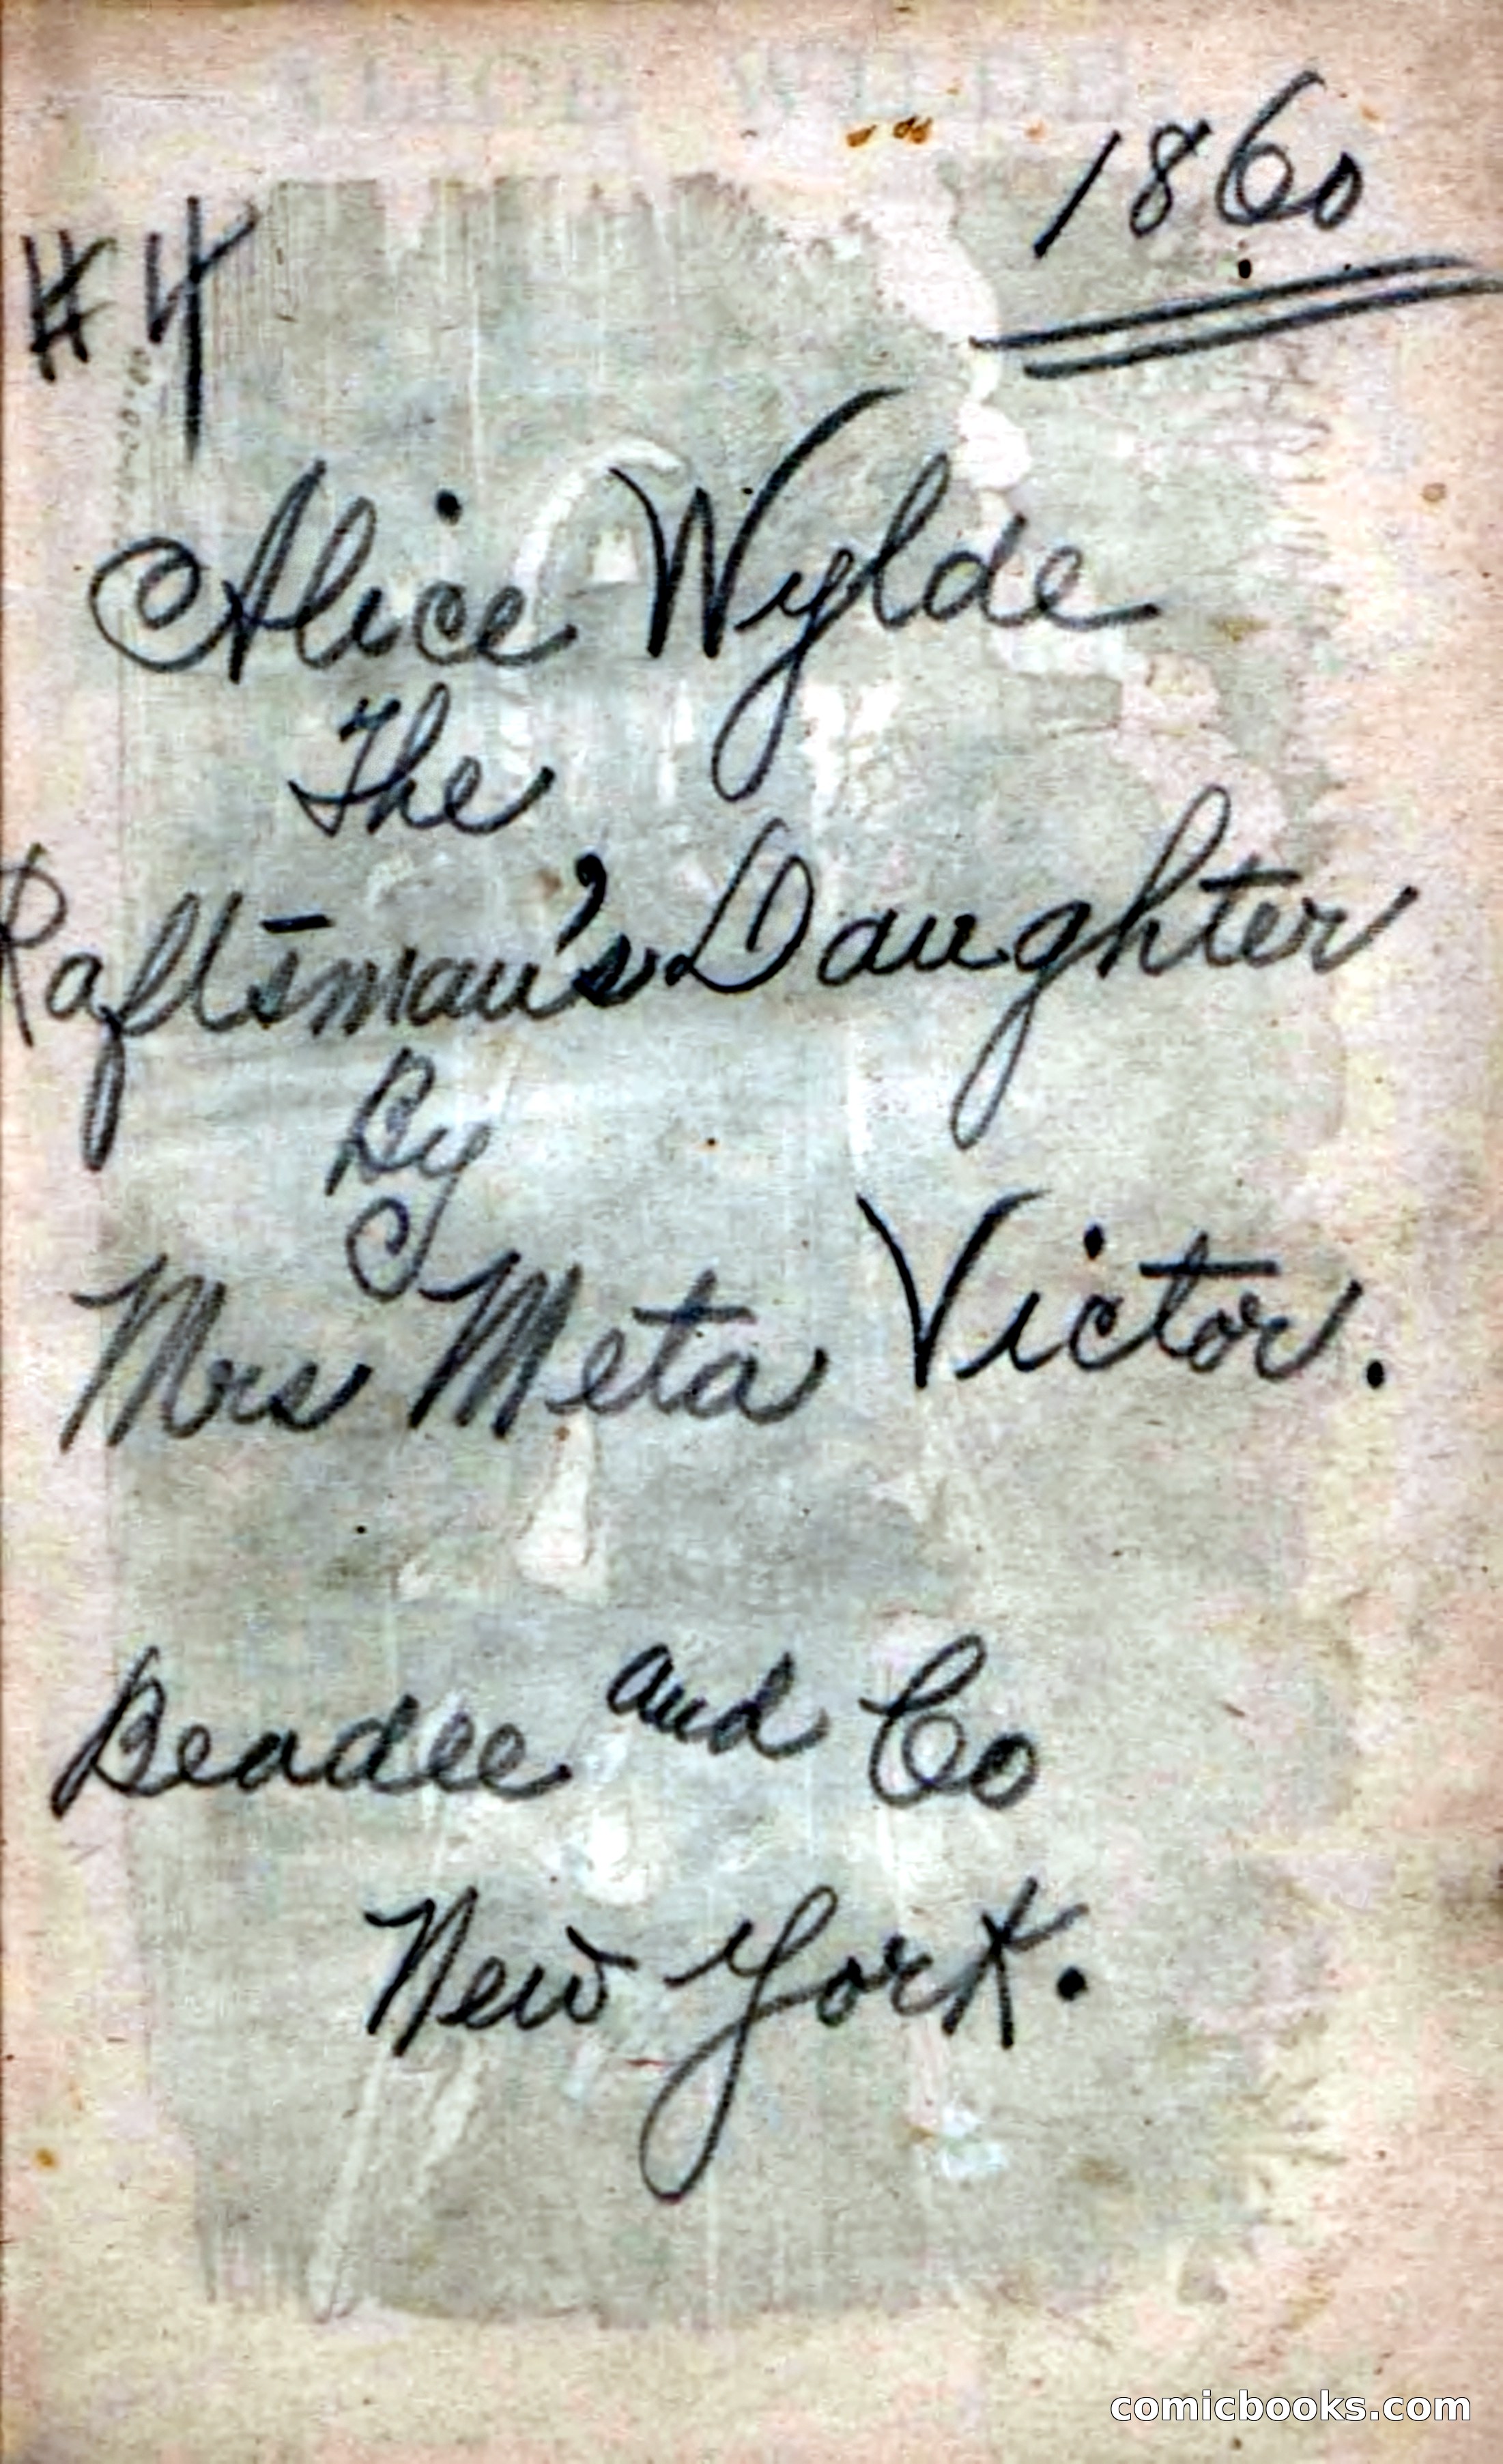 1860
#4
Alice Wylde
The
Raftsman's Daughter
By
Mrs Meta Victor.
Beadle and Co
New York.
comicbooks.com